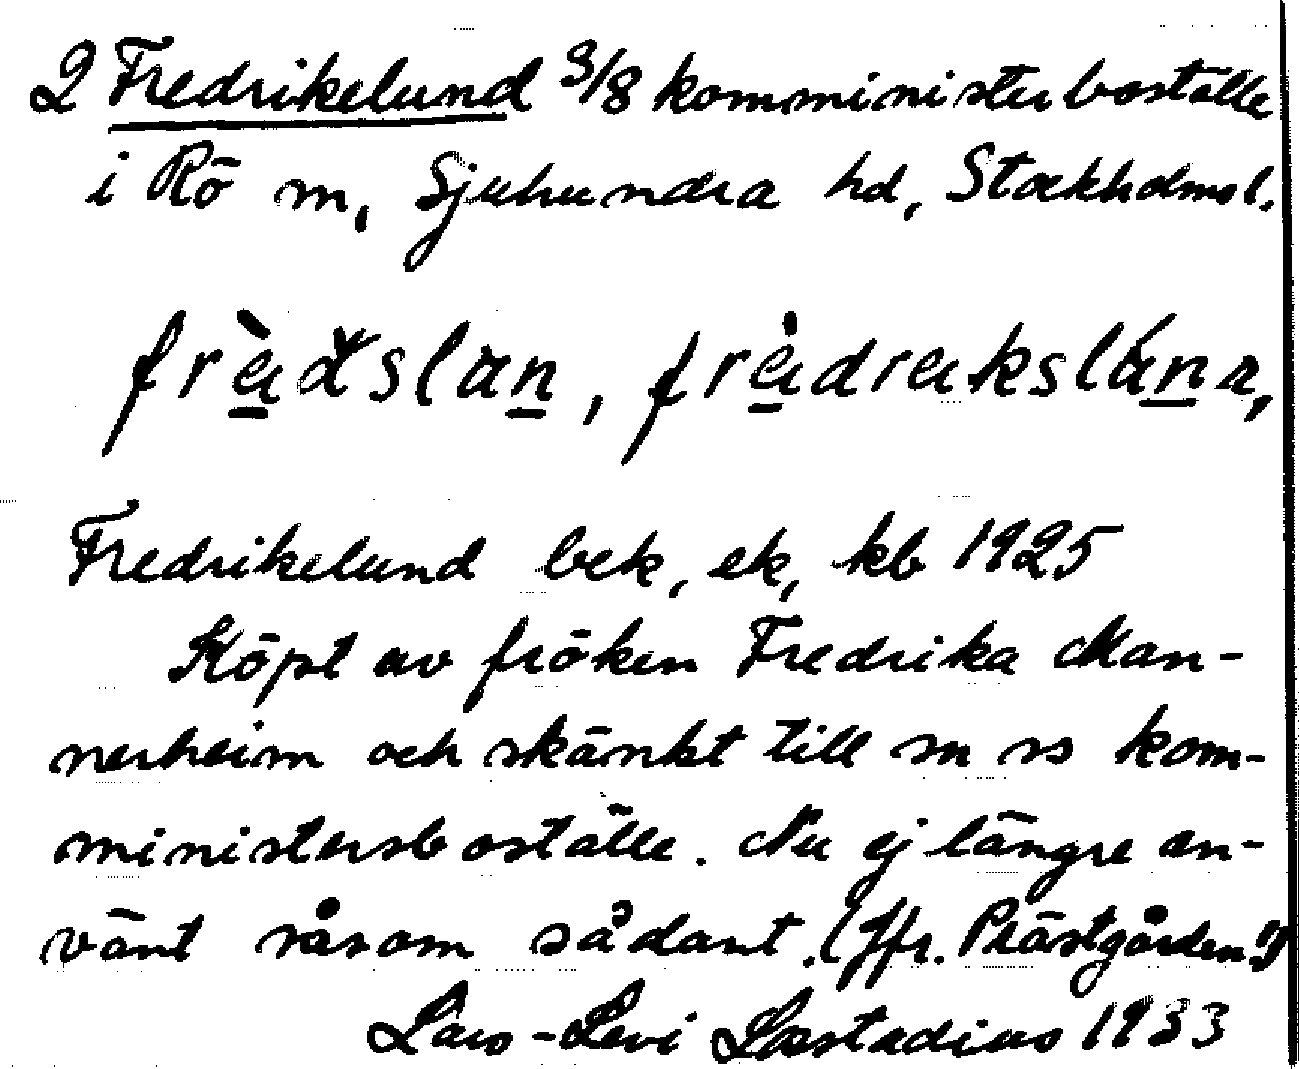 2 Fredrikelund 3/8 komministerboställe
i Rö sn, Sjuhundra hd, Stockholms l.
frèdslan, frèdrekslánn,
Fredrikelund bek, ek, kb 1925
Köpt av fröken Fredrika Man-
nerheim och skänkt till sn ss kom-
ministersboställe. Nu ej längre an-
vänt såsom sådant. (Jfr. Prästgården!)
Lars-Levi Læstadius 1933